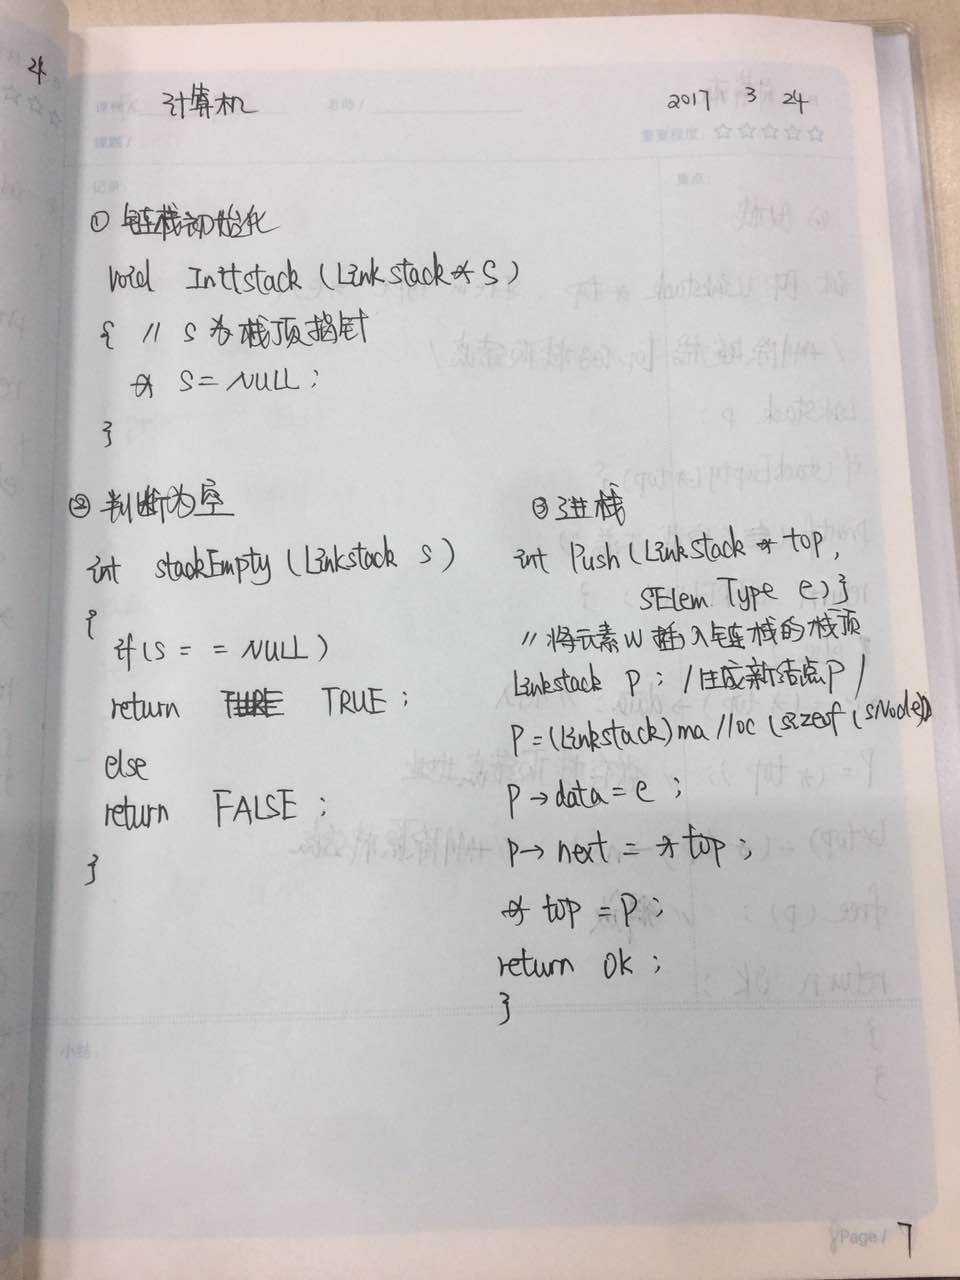 计算机
2017 3 24
重要程度: ☆☆☆☆☆
① 链栈初始化
void Inttstack (Linkstack * S)
{ // S 为栈顶指针
* S = NULL ;
}
② 判断为空
int stackEmpty (Linkstack s)
{
if (s = = NULL)
return TRUE ;
else
return FALSE ;
}
③ 进栈
int Push (Linkstack * top,
SElem Type e) }
// 将元素W插入链栈的栈顶
Linkstack P ; /生成新结点P /
P = (Linkstack) malloc (sizeof (SNode))
P → data = e ;
P → next = * top ;
* top = P ;
return ok ;
}
小结:
Page / 7